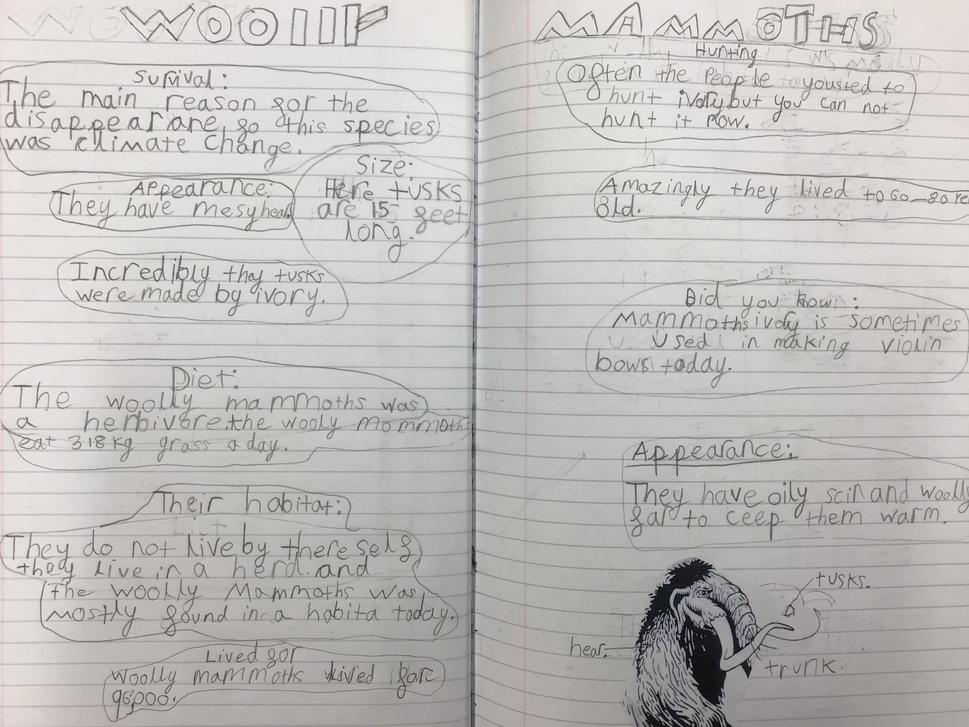 WOOllY
Survival:
The main reason gor the
disappearare, go this species
was climate change.
Appearance:
They have mesy head
Size:
Here tusks
are 15 geet
long.
Incredibly they tusks
were made by ivory.
Diet:
The woolly mammoths was
a herbivore.the wooly mommoths
eat 318kg grass a day.
Their habitat:
They do not live by there selg
they live in a herd. and
the woolly Mammoths was
mostly gound in a habita today.
Lived gor
Woolly mammoths lived gare
MAmmOTHS
Hunting
Ogten the People yousted to
hunt ivory but you can not
hunt it now.
Amazingly they lived to 60-80 re
Old.
Did you know:
Mammoths ivory is sometimes
used in making violin
bows today.
Appearance:
They have oily scin and woolly
gar to ceep them warm.
tusks.
hear.
trunk.